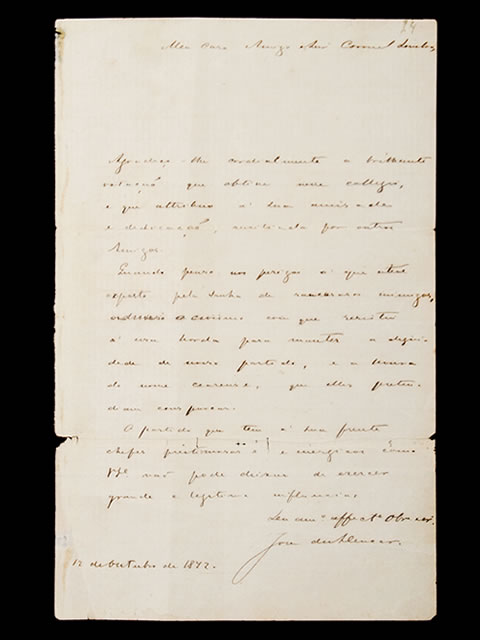 24
Meu caro Amigo Snr Coronel
Agradeço-lhe cordialmente a brilhante
votação que obtive nesse collegio,
e que attribuo á sua amisade
e dedicação, auxiliada por outros
Amigos.
Quando penso nos perigos a que esteve
exposto pela sanha de rancorosos inimigos,
admiro o civismo com que resistiu
á essa horda para manter a digni-
dade de nosso partido, e a
do nome cearense, que elles preten-
diam conspurcar.
O partido que tem á sua frente
chefes prestimosos e energicos como
não pode deixar de exercer
grande e legitima influencia.
Seu amº affectº Obr
José de Alencar.
12 de Outubro de 1872.